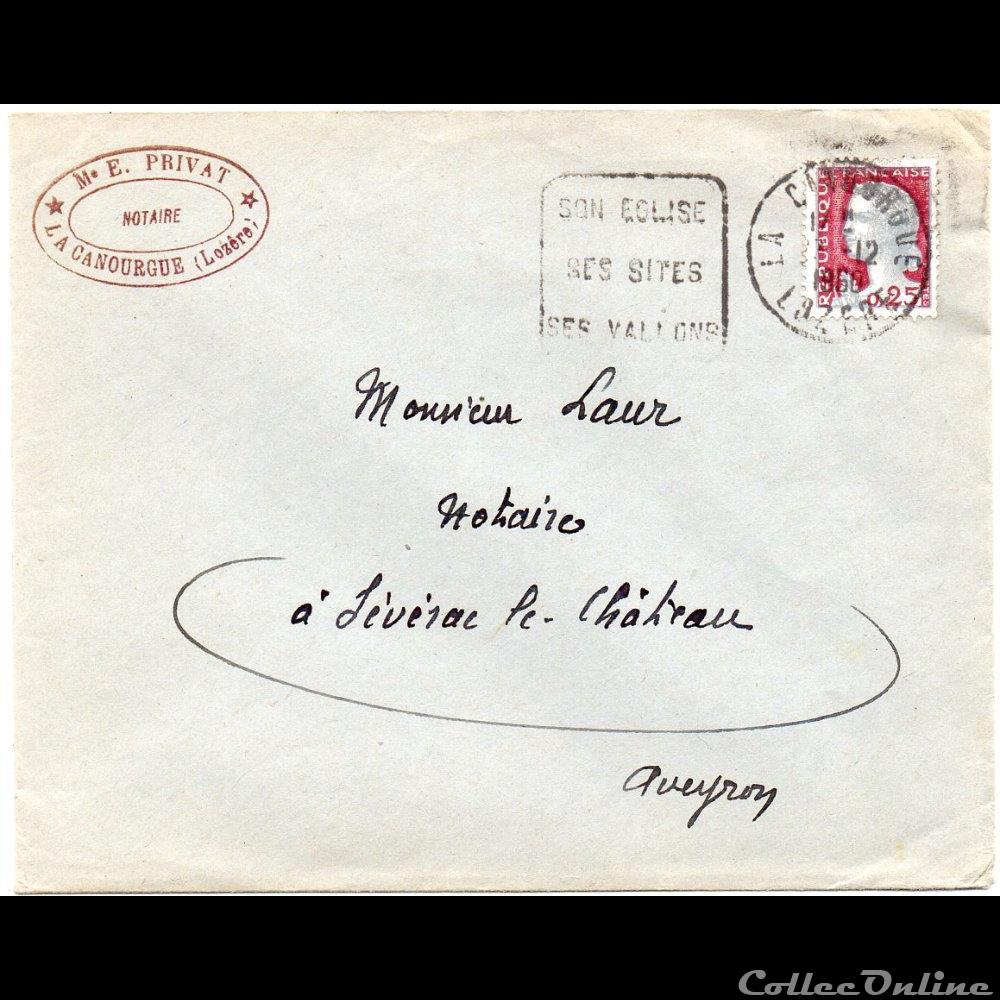 Me E. PRIVAT
NOTAIRE
LA CANOURGUE (Lozère)
SON EGLISE
SES SITES
SES VALLONS
LA CANOURGUE
12
1960
LOZERE
REPUBLIQUE FRANÇAISE
0,25
POSTES
Monsieur Laur
Notaire
à Sévérac le-Château
Aveyron
ColleeOnline